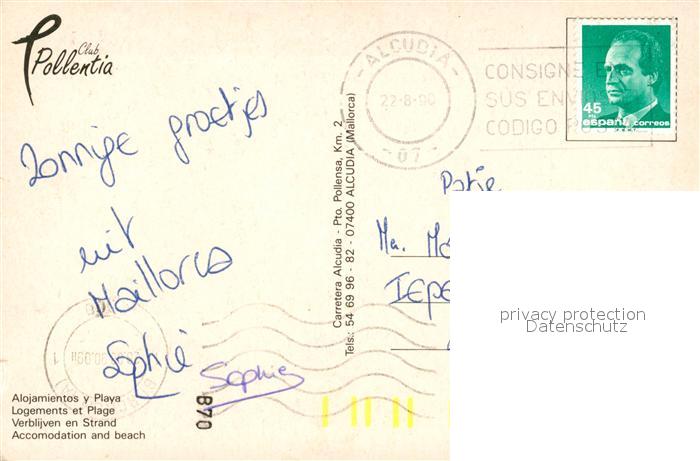 Club
Pollentia
ALCUDIA
22-8-90
07
CONSIGNE E
SUS ENVIOS
CODIGO POS
45
PTS
españa correos
Zonnige groetjes
uit
Maillorca
Sophie
Sophie
Carretera Alcudia - Pto. Pollensa, Km. 2
Tels.: 54 69 96 - 82 - 07400 ALCUDIA (Mallorca)
IEPE
privacy protection
Datenschutz
Alojamientos y Playa
Logements et Plage
Verblijven en Strand
Accomodation and beach
B70